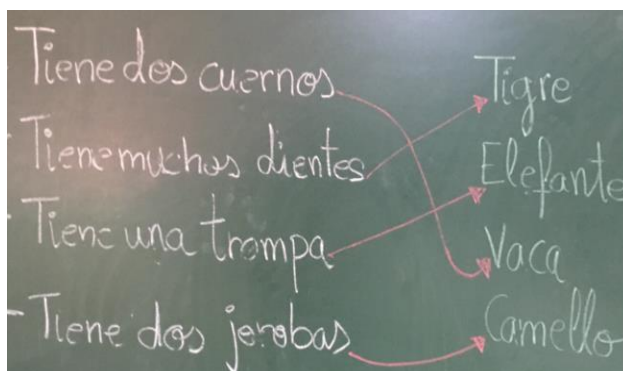 - Tiene dos cuernos
- Tiene muchos dientes
- Tiene una trompa
- Tiene dos jorobas
Tigre
Elefante
Vaca
Camello